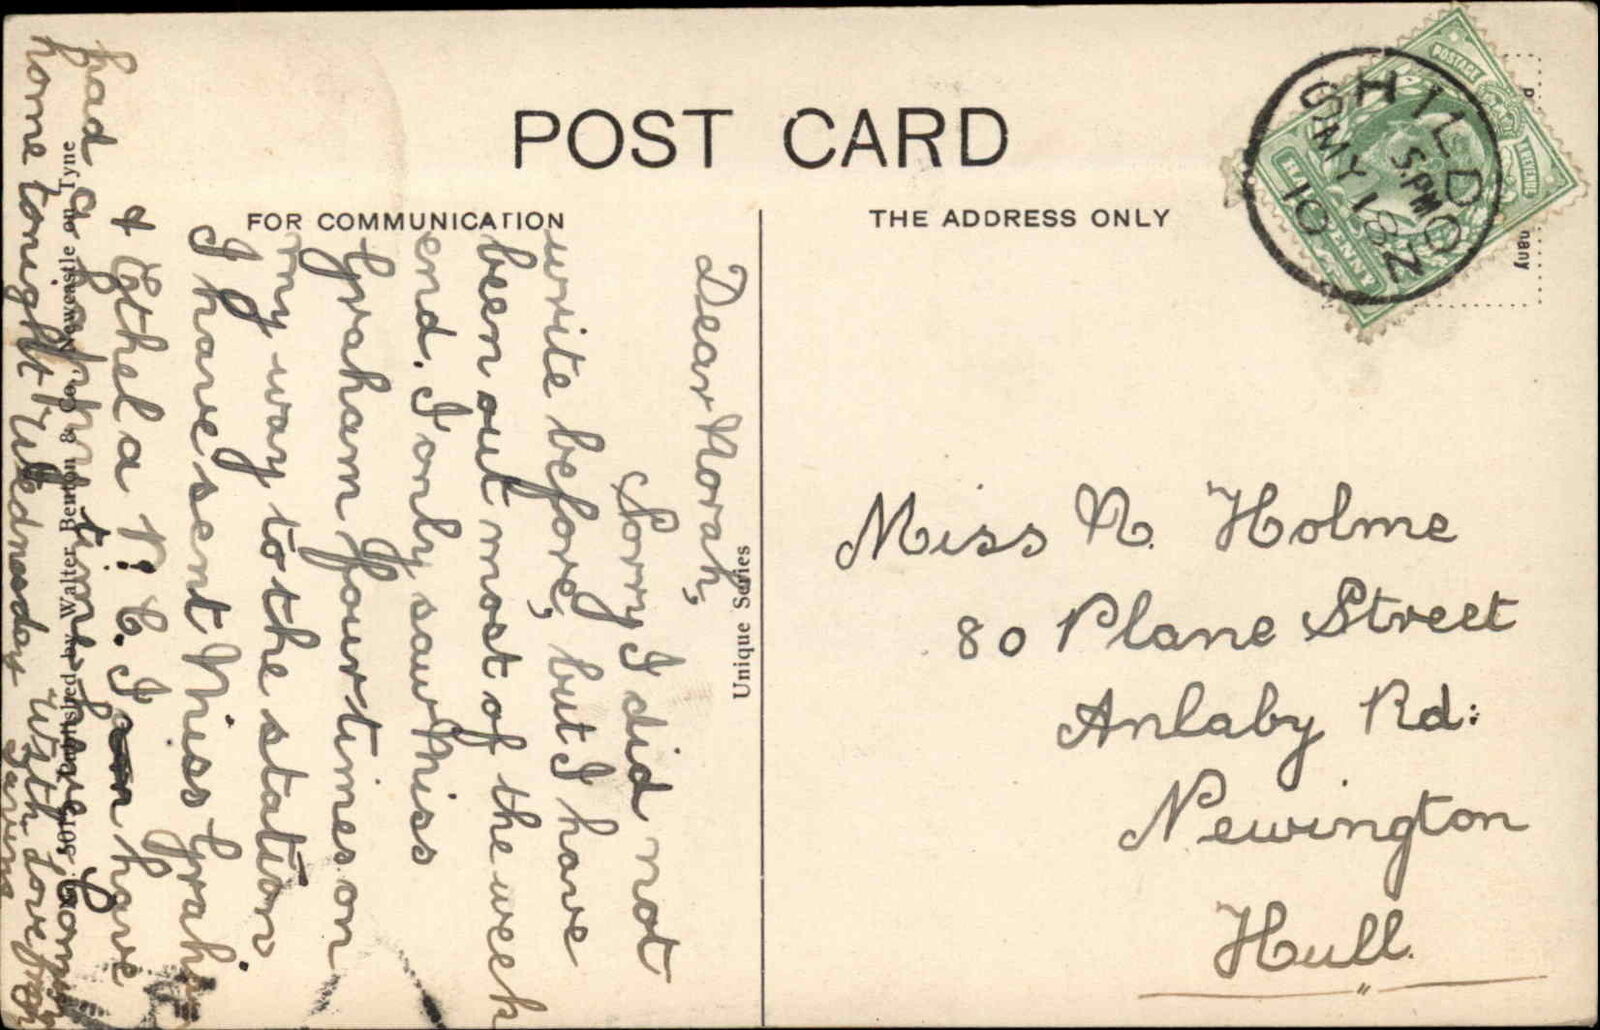 POST CARD
FOR COMMUNICATION
THE ADDRESS ONLY
Dear Norah,
Sorry I did not
write before, but I have
been out most of the week
end. I only saw Miss
Graham four times on
my way to the station
I have sent Miss Grah.
& Ethel a P. C. I have
had a time coming
home tonight Wednesday With love from
Unique Series
Published by Walter Benton & Co. Newcastle on Tyne
Miss N. Holme
80 Plane Street
Anlaby Rd:
Newington
Hull.
POSTAGE
REVENUE
HALFPENNY
5.PM
MY 18
10